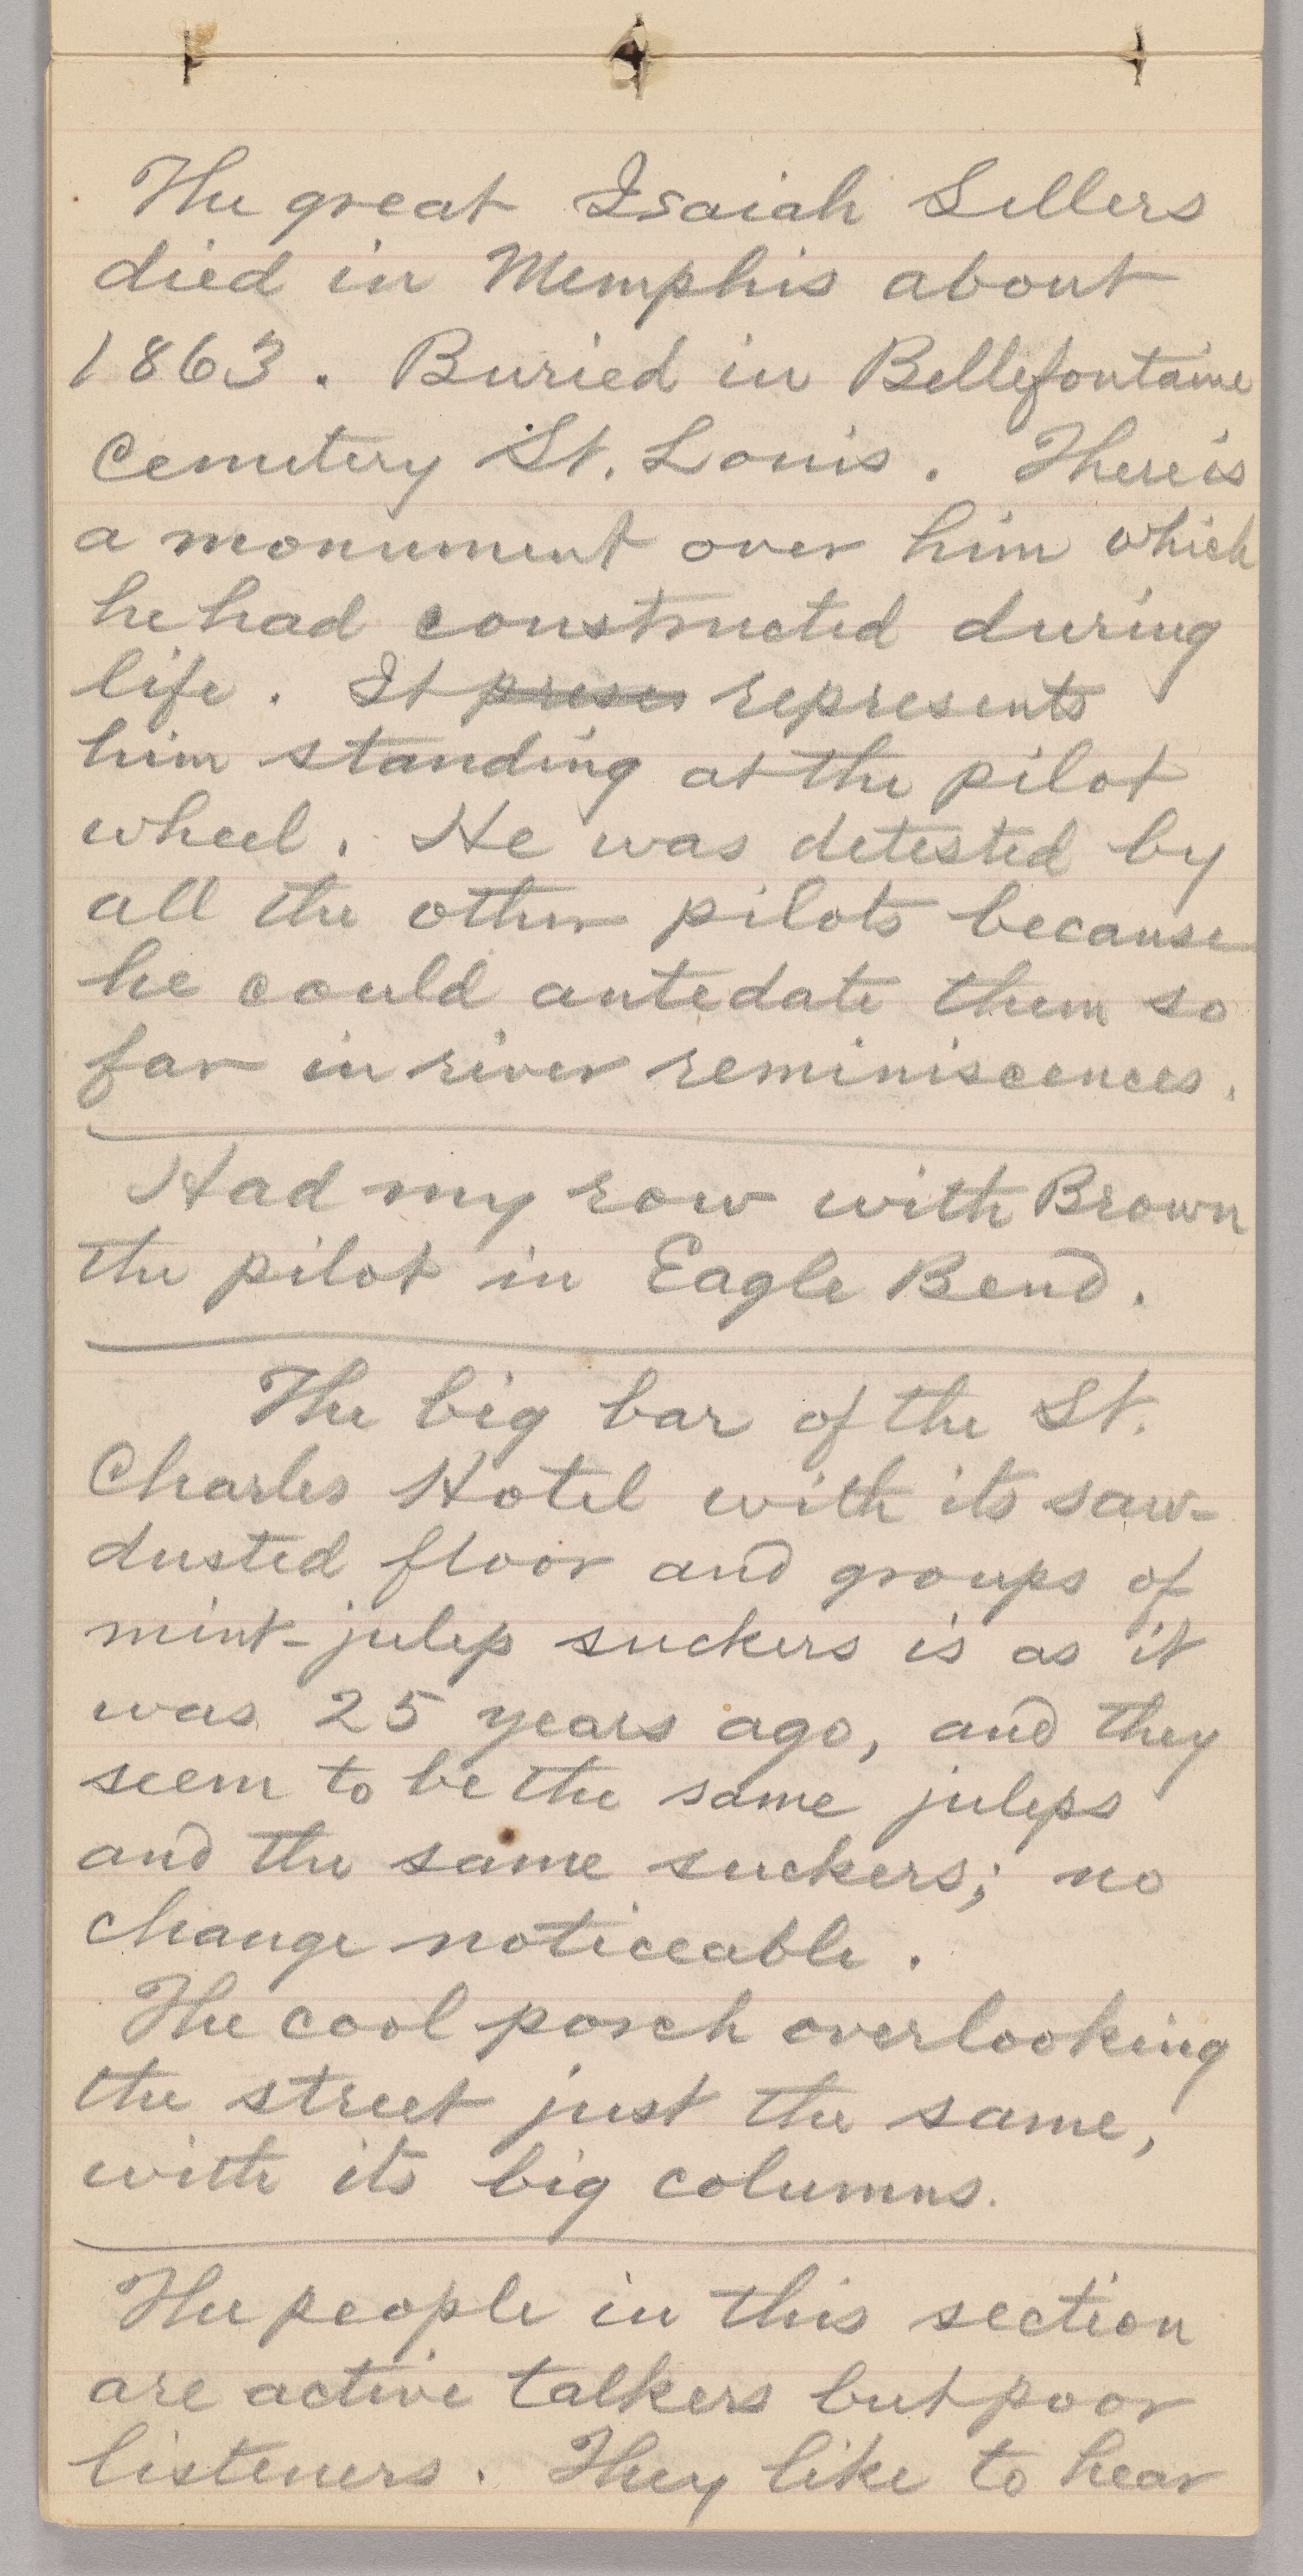 The great Isaiah Sellers
died in Memphis about
1863. Buried in Bellefontaine
Cemetery St. Louis. There is
a monument over him which
he had constructed during
life. It preses represents
him standing at the pilot
wheel. He was detested by
all the other pilots because
he could antedate them so
far in river reminiscences.
Had my row with Brown
the pilot in Eagle Bend.
The big bar of the St.
Charles Hotel with its saw-
dusted floor and groups of
mint-julep suckers is as it
was 25 years ago, and they
seem to be the same juleps
and the same suckers; no
change noticeable.
The cool porch overlooking
the street just the same,
with its big columns.
The people in this section
are active talkers but poor
listeners. They like to hear